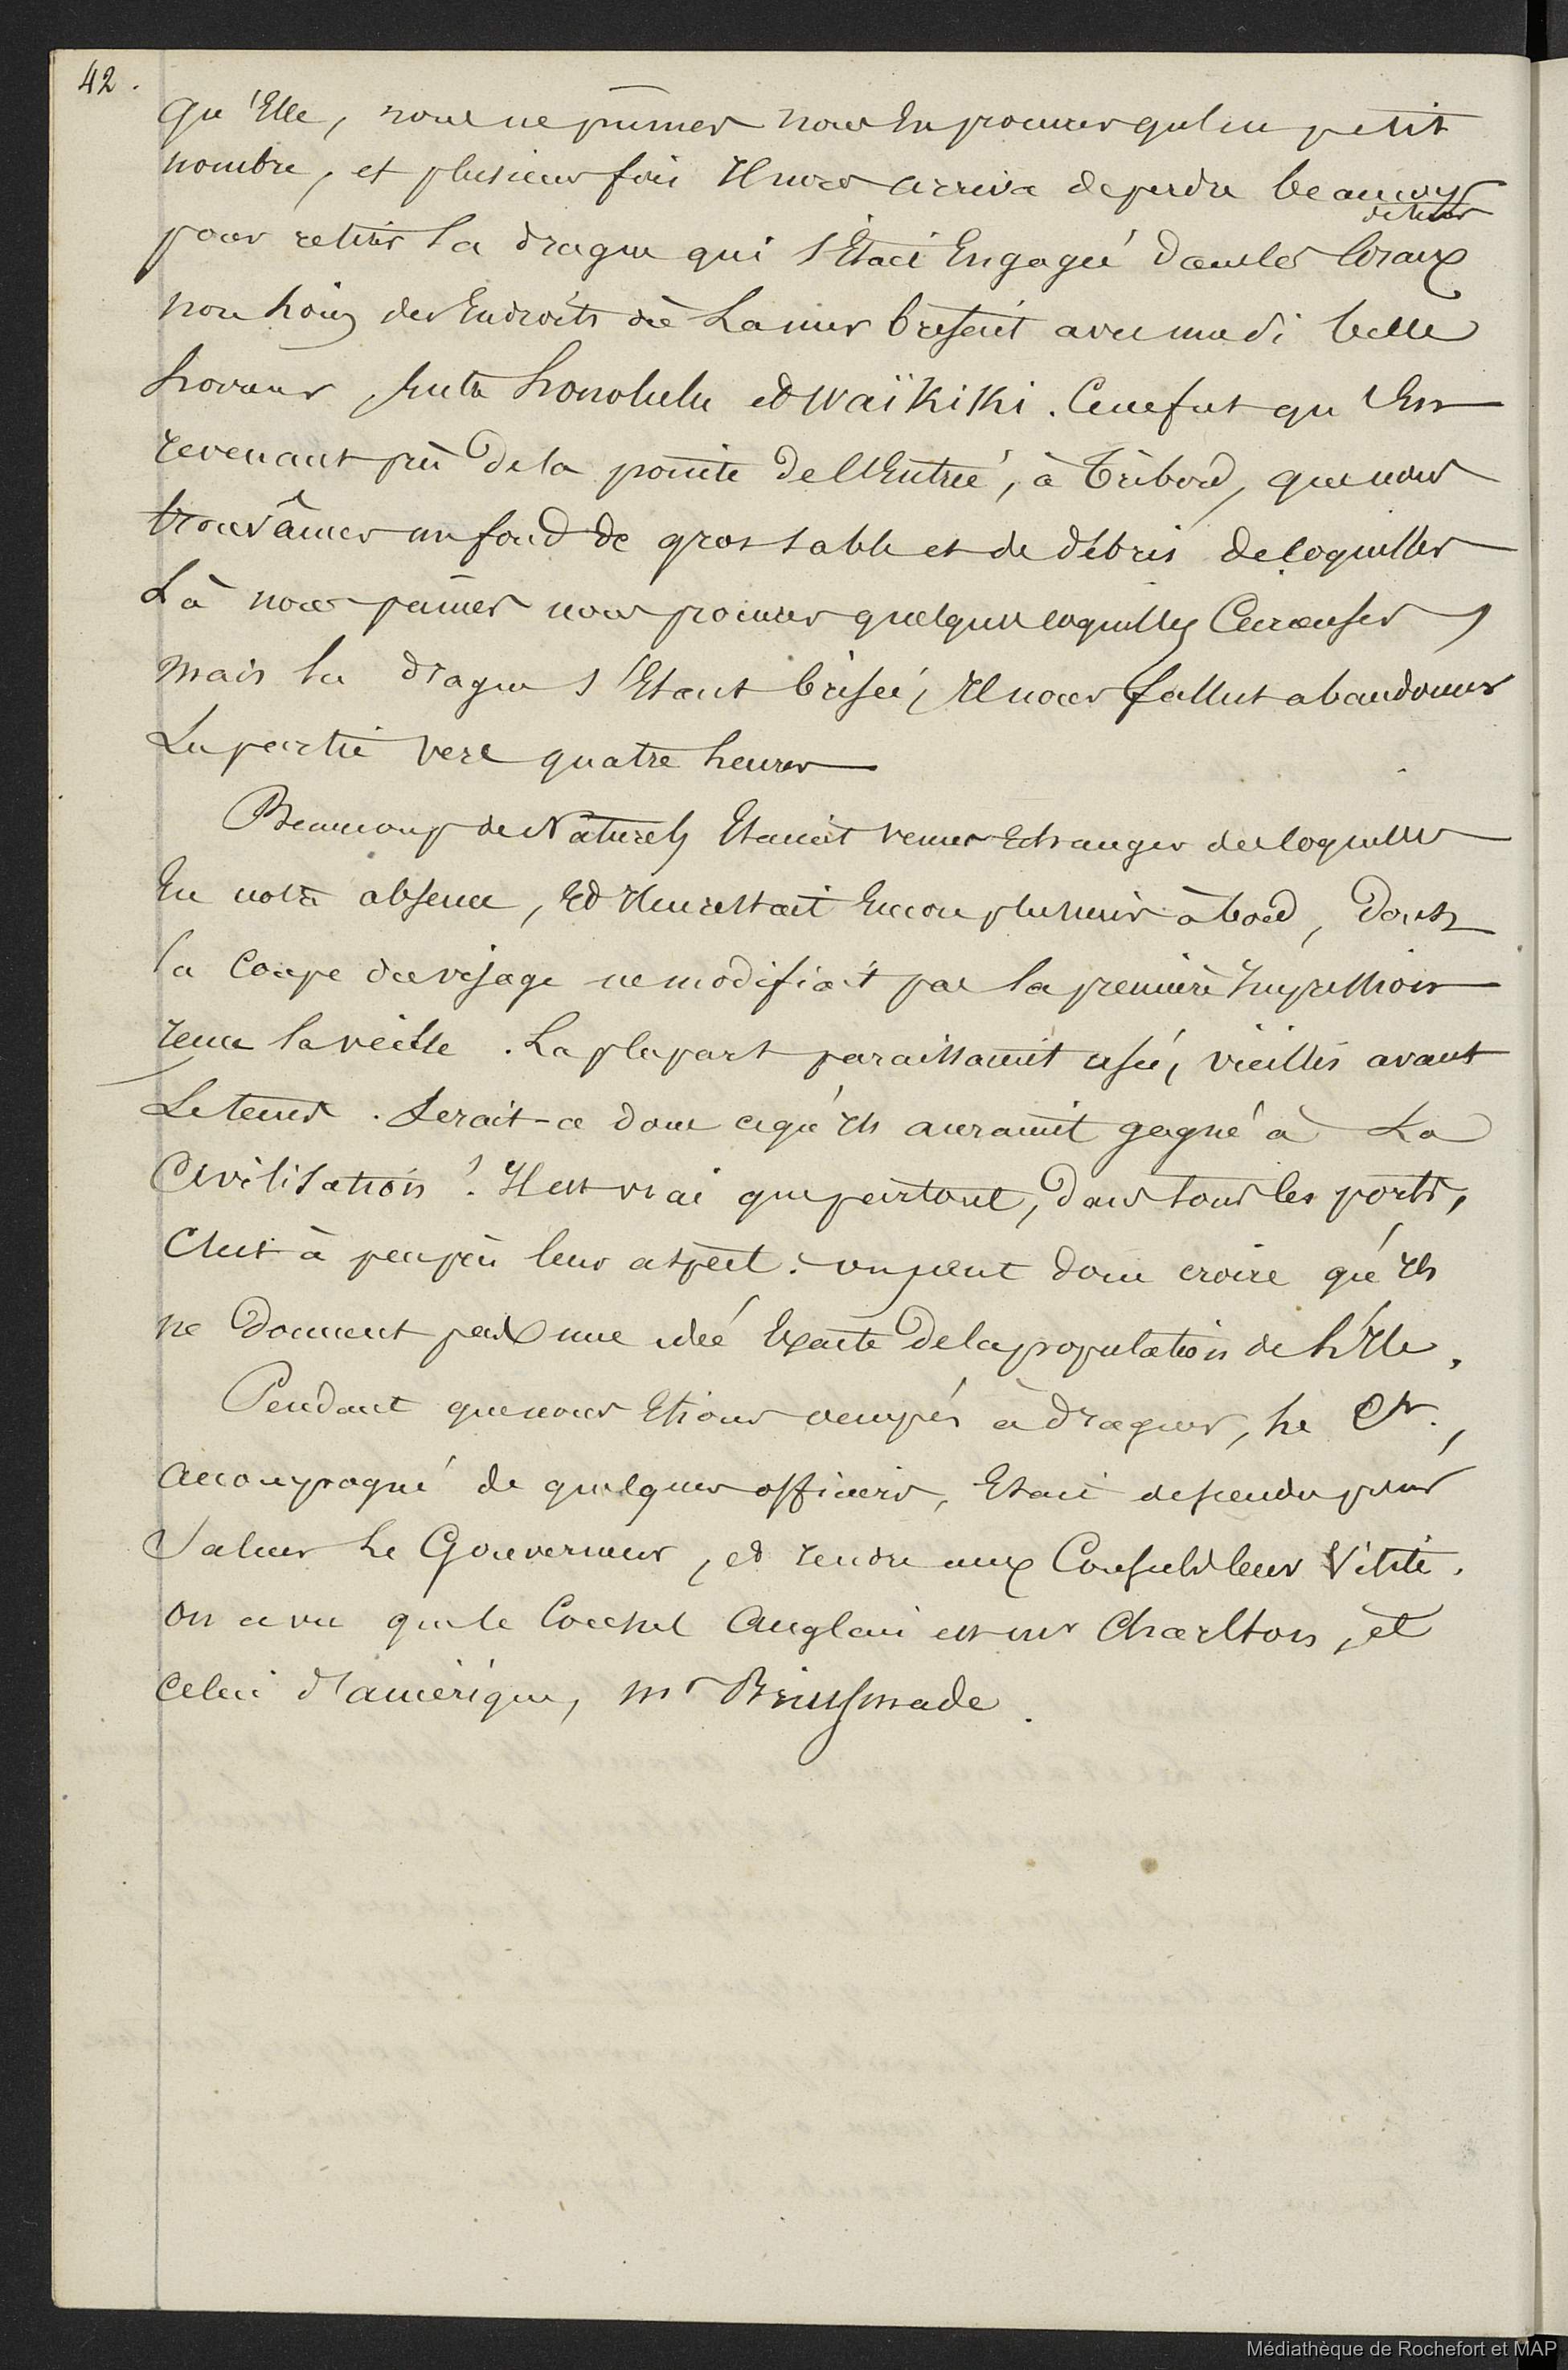 42.
qu'Elle, nous ne pûmes nous En procurer qu'un petit
nombre, et plusieurs fois Il nous arriva de perdre beaucoup
de tems
pour retirer la drague qui s'Etait Engagée dans les Coraux
non loin des Endroits où La mer brisait avec
fureur, Entre honolulu et Waïkiki. Ce ne fut qu'En
revenant près de la pointe de l'Entrée, à Tribord, que nous
trouvâmes un fond de gros sable et de débris de Coquilles
Là nous pûmes nous procurer quelques coquilles Curieuses,
mais la drague s'Etant brisée, Il nous fallut abandonner
La partie vers quatre heures
Beaucoup de Naturels Etaient venus Echanger des Coquilles
En notre absence, Et Il en restait Encore plusieurs à bord, Dont
la coupe du visage ne modifiait pas la première Impression
reçue la veille. La plupart paraissaient usés, vieillis avant
Le tems. Serait-ce donc ce qu'Ils auraient gagné à La
Civilisation? Il est vrai que partout, dans tous les ports,
C'est à peu près leur aspect: on peut donc croire qu'Ils
ne donnent pas une idée Exacte de la population de L'Ile.
Pendant que nous Etions occupés à draguer, Le Ct.,
accompagné de quelques officiers, Etait descendu pour
Saluer Le Gouverneur, et rendre aux Consuls leur Visite.
on a vu que le Consul Anglais est mr Charlton, et
celui d'amérique, mr Brinsmade.
Médiathèque de Rochefort et MAP